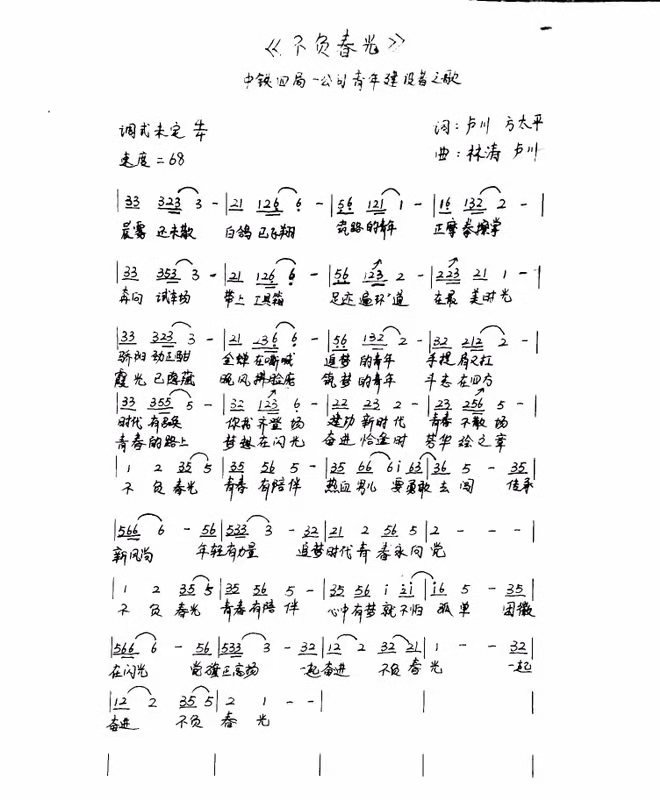 《不负春光》
中铁四局一公司青年建设者之歌
调式未定 4/4
词:卢川 方太平
速度=68
曲:林涛 卢川
|33 323 3 -|21 126 6 -|56 121 1 -|16 132 2 -|
晨雾 还未散 白鸽 已飞翔 筑路的青年 正摩拳擦掌
|33 353 3 -|21 126 6 -|56 123 2 -|223 21 1 -|
奔向 试车场 带上 工具箱 足迹 遍环道 在最 美时光
|33 323 3 -|21 236 6 -|56 132 2 -|32 212 2 -|
骄阳 动正酣 金蝉 在嘶喊 追梦 的青年 手提 肩又扛
霞光 已隐藏 晚风 拂脸庞 筑梦 的青年 斗志 在四方
|33 355 5 -|32 123 6 -|22 23 2 -|23 256 5 -|
时代 有召唤 你我 不登场 建功 新时代 青春 不散场
青春的路上 梦想 在闪光 奋进 恰逢时 芳华 绘之章
|1 2 35 5|35 56 5 -|35 66 6i 63|36 5 - 35|
不 负 春光 青春 有陪伴 热血 男儿 要勇敢 去 闯 传承
|566 6 - 56|533 3 - 32|21 2 56 5|2 - - -|
新风尚 年轻有力量 追梦时代 青 春永向 党
|1 2 35 5|35 56 5 -|35 56 i 2i|i6 5 - 35|
不 负 春光 青春有陪 伴 心中有梦 就不怕 孤 单 团徽
|566 6 - 56|533 3 - 32|12 2 32 21|1 - - 32|
在闪光 党旗正高扬 一起奋进 不负 春 光 一起
|12 2 35 5|2 1 - -|
奋进 不负 春 光